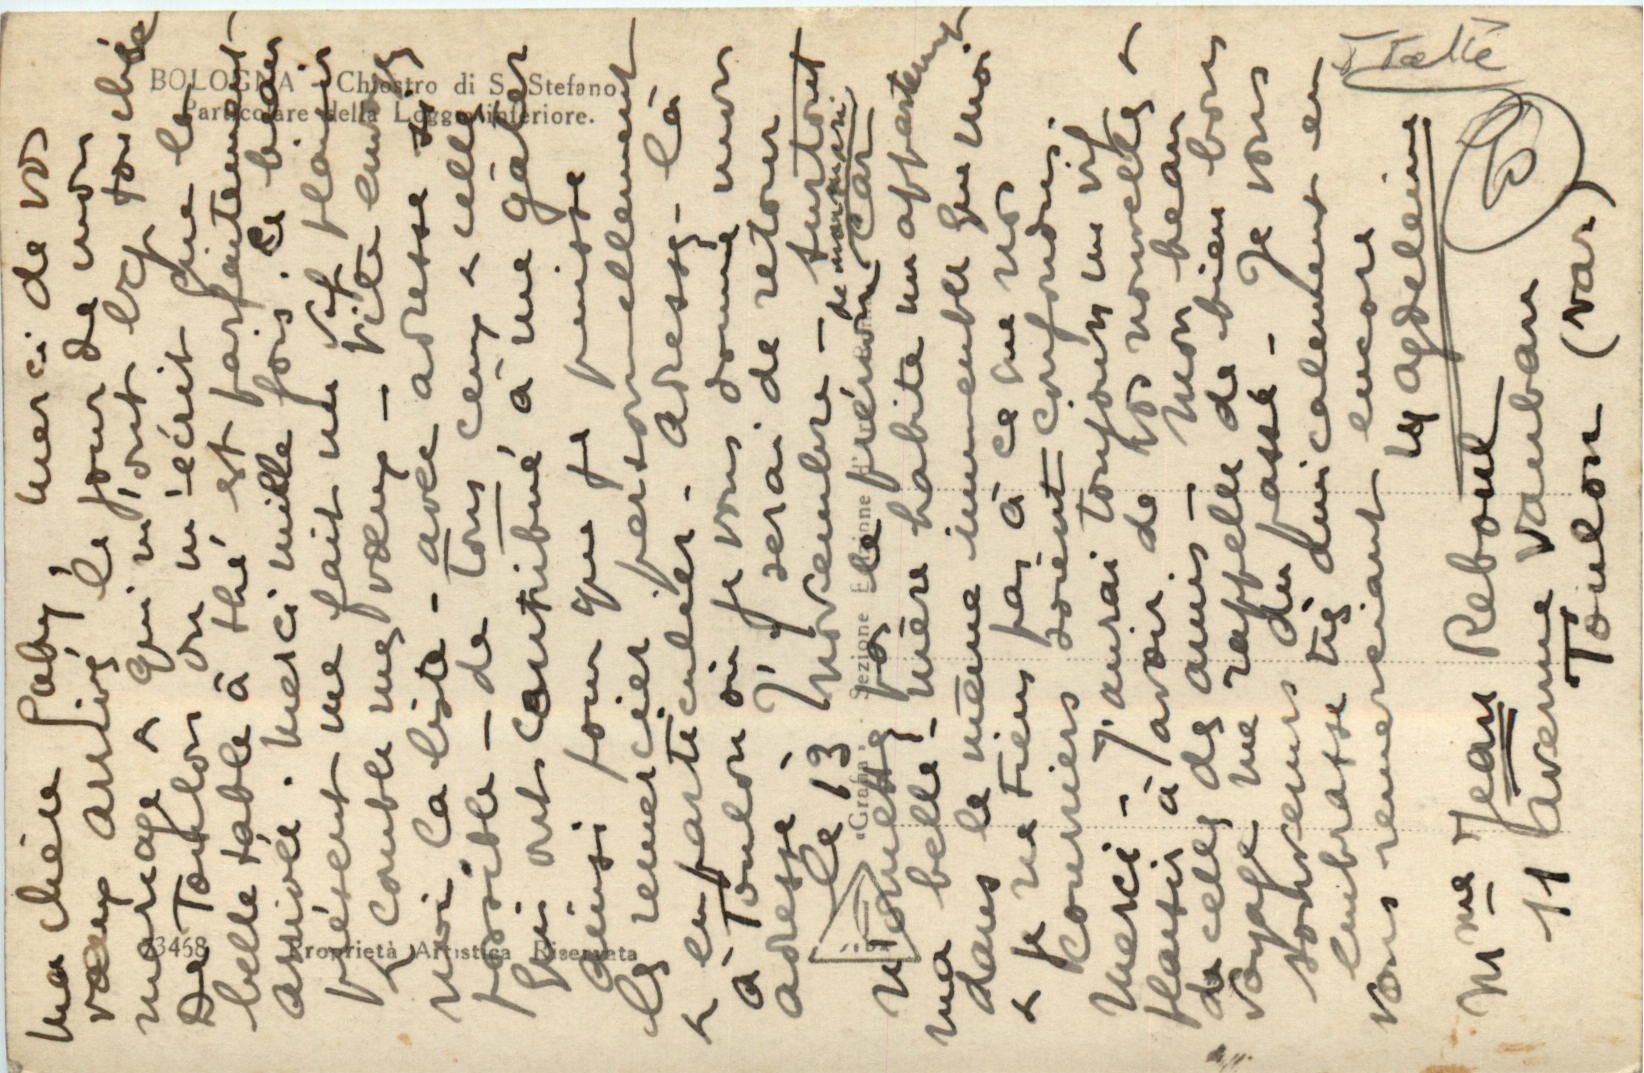 BOLOGNA - Chiostro di S. Stefano.
Particolare della Loggia inferiore.
23468 Proprietà Artistica Riservata
Italie
Ma chère Gaby, merci de vos
vœux arrivés le jour de mon
mariage & qui m'ont bcp touchée
De Toulon on m'écrit que la
belle table à thé est parfaitement
arrivée. Merci mille fois. Ce beau
présent me fait un vif plaisir
& comble mes vœux - Vite envoyez
moi la liste - avec adresse si
possible - de tous ceux & celles
qui ont contribué à me gâter
ainsi pour que je puisse
les remercier personnellement
& en particulier - adressez-là
à Toulon où je vous donne mon
adresse. J'y serai de retour
le 13 Novembre - surtout
n'omettez pas le prénom de mon mari, car
ma belle-mère habite un appartement
dans le même immeuble que moi
& je ne tiens pas à ce que nos
courriers soient confondus.
Merci - J'aurai toujours un vif
plaisir à avoir de vos nouvelles &
de celles des amis - Mon beau
voyage me rappelle de bien bons
souvenirs du passé - Je vous
embrasse très amicalement en
vous remerciant encore
Magdeleine
Mme Jean Reboul
11 Avenue Vauban
Toulon (Var)